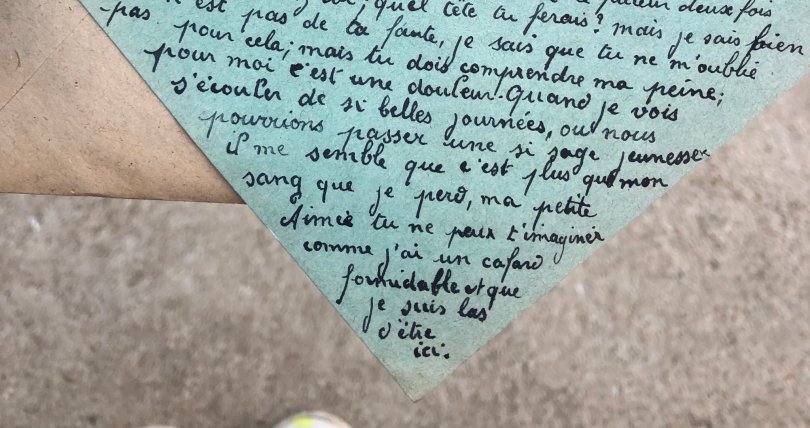 facteur deux fois
n'est pas de ta faute, quel tête tu ferais? mais je sais bien
pas pour cela; mais tu dois comprendre ma peine;
je sais que tu ne m'oublie
pour moi c'est une douleur. Quand je vois
s'écouler de si belles journées, ou nous
pourrions passer une si sage jeunesse
il me semble que c'est plus que mon
sang que je perd, ma petite
Aimée tu ne peux t'imaginer
comme j'ai un cafard
formidable et que
je suis las
d'être
ici.